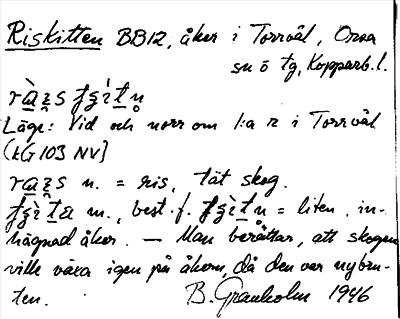 Riskitten BB12, åker i Torrvål, Orsa
sn ö tg, Kopparb. l.
Läge: Vid och norr om 1:a r i Torrvål
(kG 103 NV)
n. = ris, tät skog.
m., best. f. = liten, in-
hägnad åker. — Man berättar, att skogen
ville växa igen på åkern, då den var nybru-
ten. B. Granholm 1946